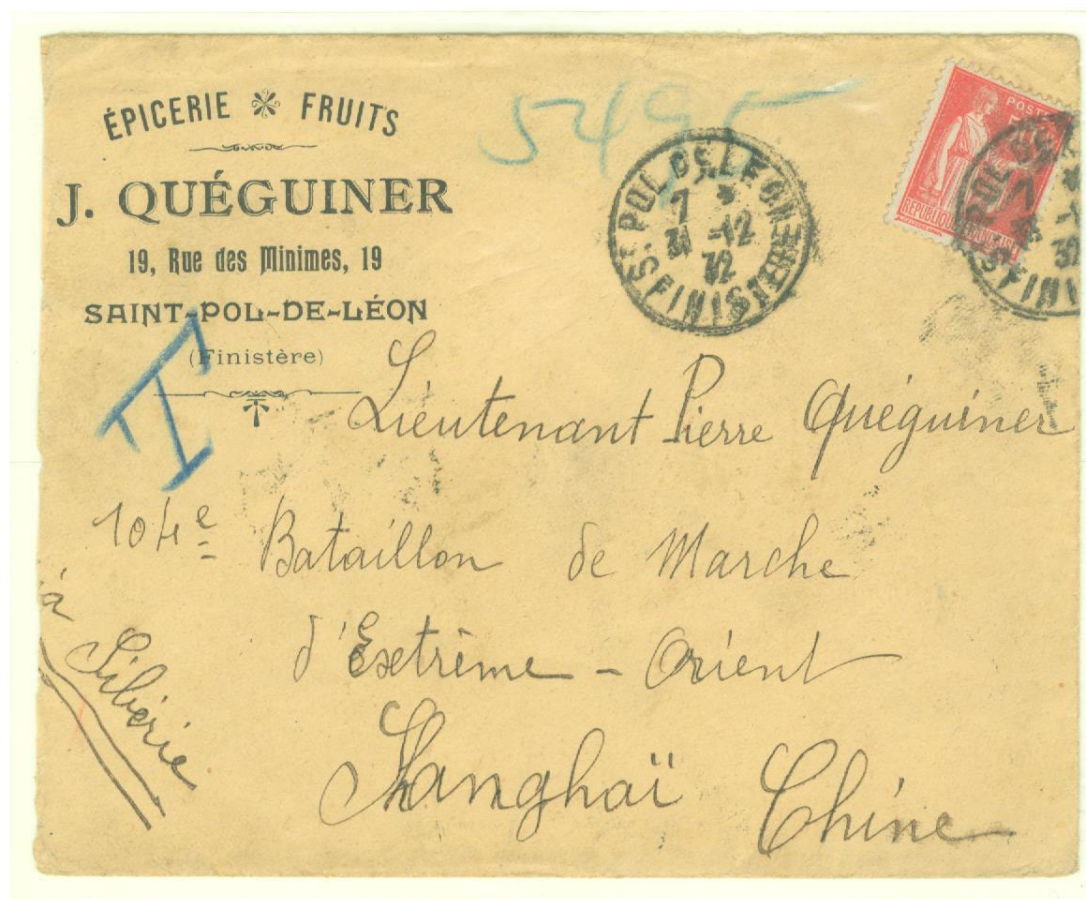 ÉPICERIE FRUITS
J. QUÉGUINER
19, Rue des Minimes, 19
SAINT-POL-DE-LÉON
(Finistère)
T
ST. POL DE LEON
7
31 -12
32
FINISTERE
POSTE
REPUBLIQUE FRANÇAISE
POL DE
7
32
FINI
Lieutenant Pierre Quéguiner
104e Bataillon de Marche
d'Extrême-Orient
Shanghaï Chine
Sibérie